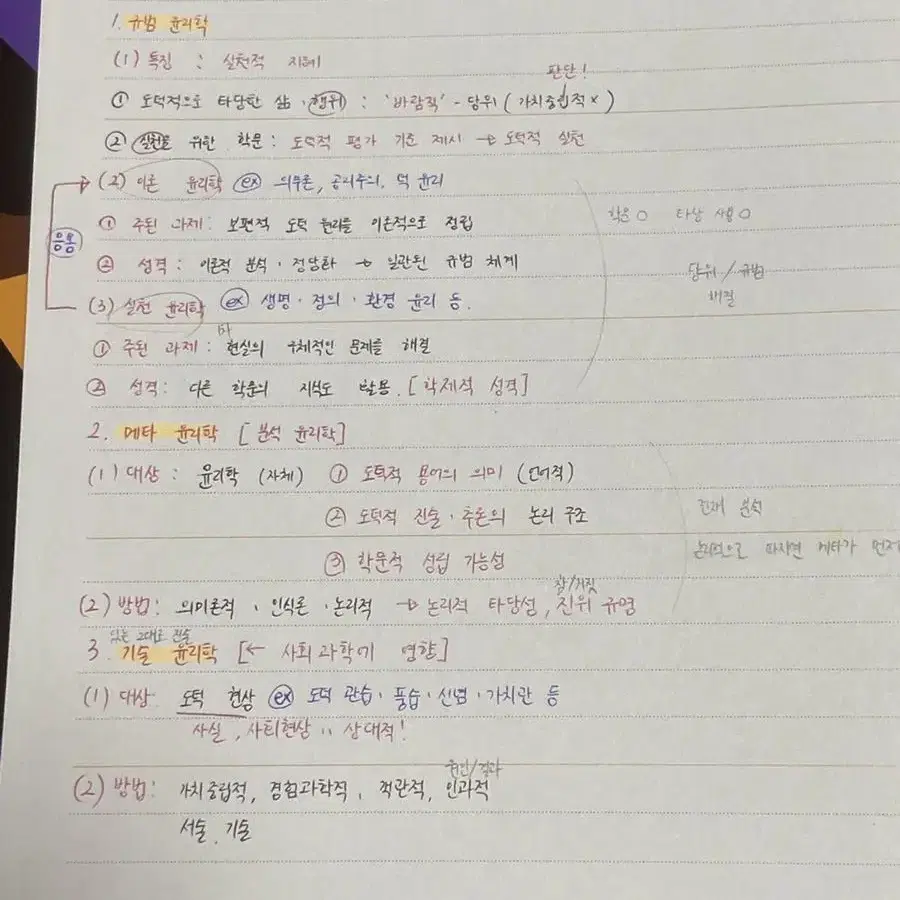 1. 규범 윤리학
(1) 특징 : 실천적 지혜
판단!
① 도덕적으로 타당한 삶·행위 : '바람직' - 당위 (가치중립적 ×)
② 실천을 위한 학문 : 도덕적 평가 기준 제시 → 도덕적 실천
(2) 이론 윤리학 ex 의무론, 공리주의, 덕 윤리
① 주된 과제 : 보편적 도덕 원리를 이론적으로 정립
타당
응용
② 성격 : 이론적 분석·정당화 → 일관된 규범 체계
당위/규범
해결
(3) 실천 윤리학 ex 생명·정의·환경 윤리 등.
① 주된 과제 : 현실의 구체적인 문제를 해결
② 성격 : 다른 학문의 지식도 활용. [학제적 성격]
2. 메타 윤리학 [분석 윤리학]
(1) 대상 : 윤리학 (자체) ① 도덕적 용어의 의미 (언어적)
② 도덕적 진술·추론의 논리 구조
분석
③ 학문적 성립 가능성
논리적으로 따지면 메타가 먼저
참/거짓
(2) 방법 : 의미론적·인식론·논리적 → 논리적 타당성, 진위 규명
있는 그대로 진술
3. 기술 윤리학 [← 사회과학에 영향]
(1) 대상 도덕 현상 ex 도덕 관습·풍습·신념·가치관 등
사실, 사회현상 상대적!
원인/결과
(2) 방법 : 가치중립적, 경험과학적, 객관적, 인과적
서술, 기술